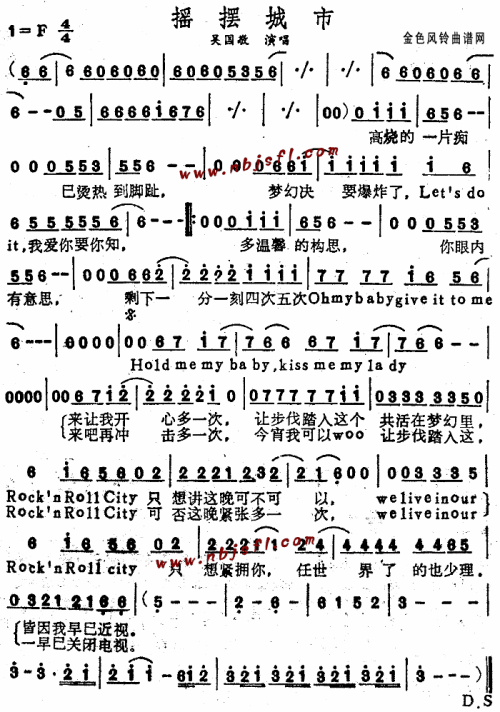 摇摆城市
1=F 4/4
吴国敬 演唱
金色风铃曲谱网
(6 6 | 6 6060606 | 60606 5356 | ·/· | ·/· | 6 606066 |
6 - - 05 | 6666i676 | ·/· | ·/· | 00) 0iii | 656 - - |
高烧的 一片痴
www.nbjsfl.com
000553 | 556 - - | 000066i | iiiii i6 |
已烫热 到脚趾, 梦幻决 要爆炸了, Let's do
6 5555556 | 6 - - - :‖: 000iii | 656 - - | 000553 |
it,我爱你要你知, 多温馨 的构思, 你眼内
556 - - | 000662 | 22222iiii | 77 77i65 |
有意思, 剩下一 分一刻四次五次Ohmybabygive it to me
6 - - - | 0000 | 0067 i7 | 766 67i7 | 766 - |
Hold me my baby, kiss me my lady
0000 | 0067i2 | 22222i0 | 0777777ii | 03333350 |
来让我开 心多一次, 让步伐踏入这个 共活在梦幻里,
来吧再冲 击多一次, 今宵我可以woo 让步伐踏入这,
6 i65602 | 2221232 | 2i600 | 003335 |
Rock'nRollCity 只 想讲这晚可不可 以, weliveinour
Rock'nRollCity 可 否这晚紧张多一 次, weliveinour
6 i65602 | 222i 24 | 4444 4465 |
Rock'nRoll city 只 想紧拥你, 任世 界了的也少理,
www.nbjsfl.com
032121266 | (5 - - - | 2 - 6 - | 6152 | 3 - - - |
皆因我早已近视。
一早已关闭电视。
3 - 3·2i | 2ii - 6i2 | 32i32i32i32i | 3 - - -) ‖
D.S